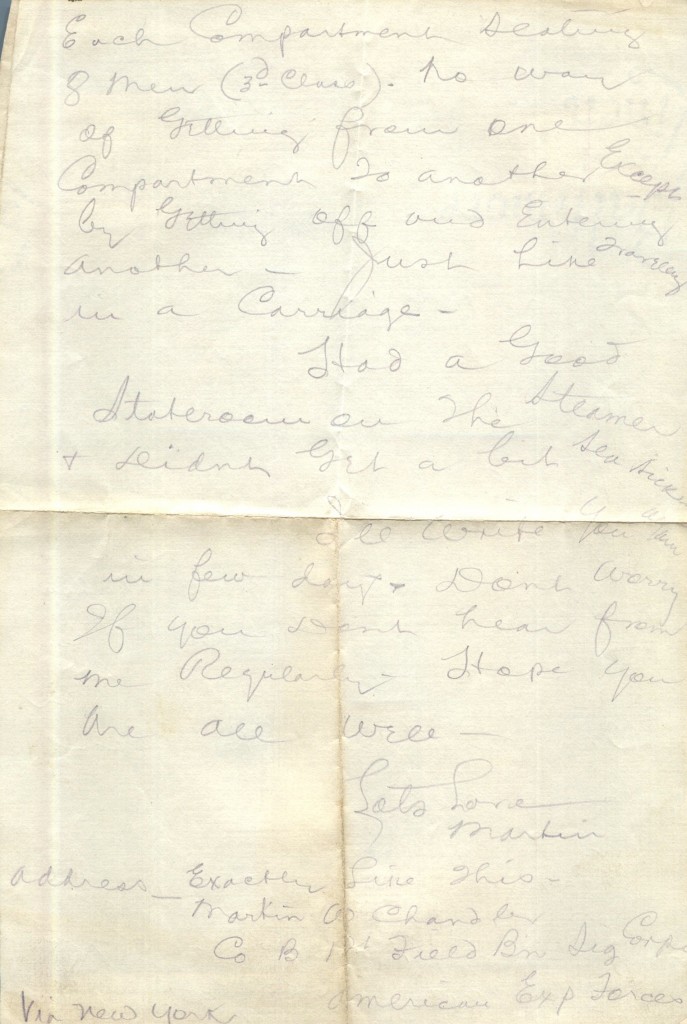 Each Compartment Seating
8 Men (3d Class). No way
of Getting from one
Compartment to another Except
by Getting off and Entering
another – Just Like Traveling
in a Carriage –
Had a Good
Stateroom on the Steamer
+ Didnt Get a bit Sea Sick
I'll Write You
in few days + Dont Worry
If you Dont hear from
me Regularly – Hope You
are all Well –
Lots Love
Martin
address – Exactly Like This –
Martin Chandler
Co B 1st Field Bn Sig Corps
American Exp Forces
Via New York